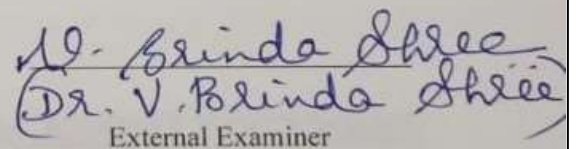 V. Brinda Shree
(Dr. V. Brinda Shree)
External Examiner